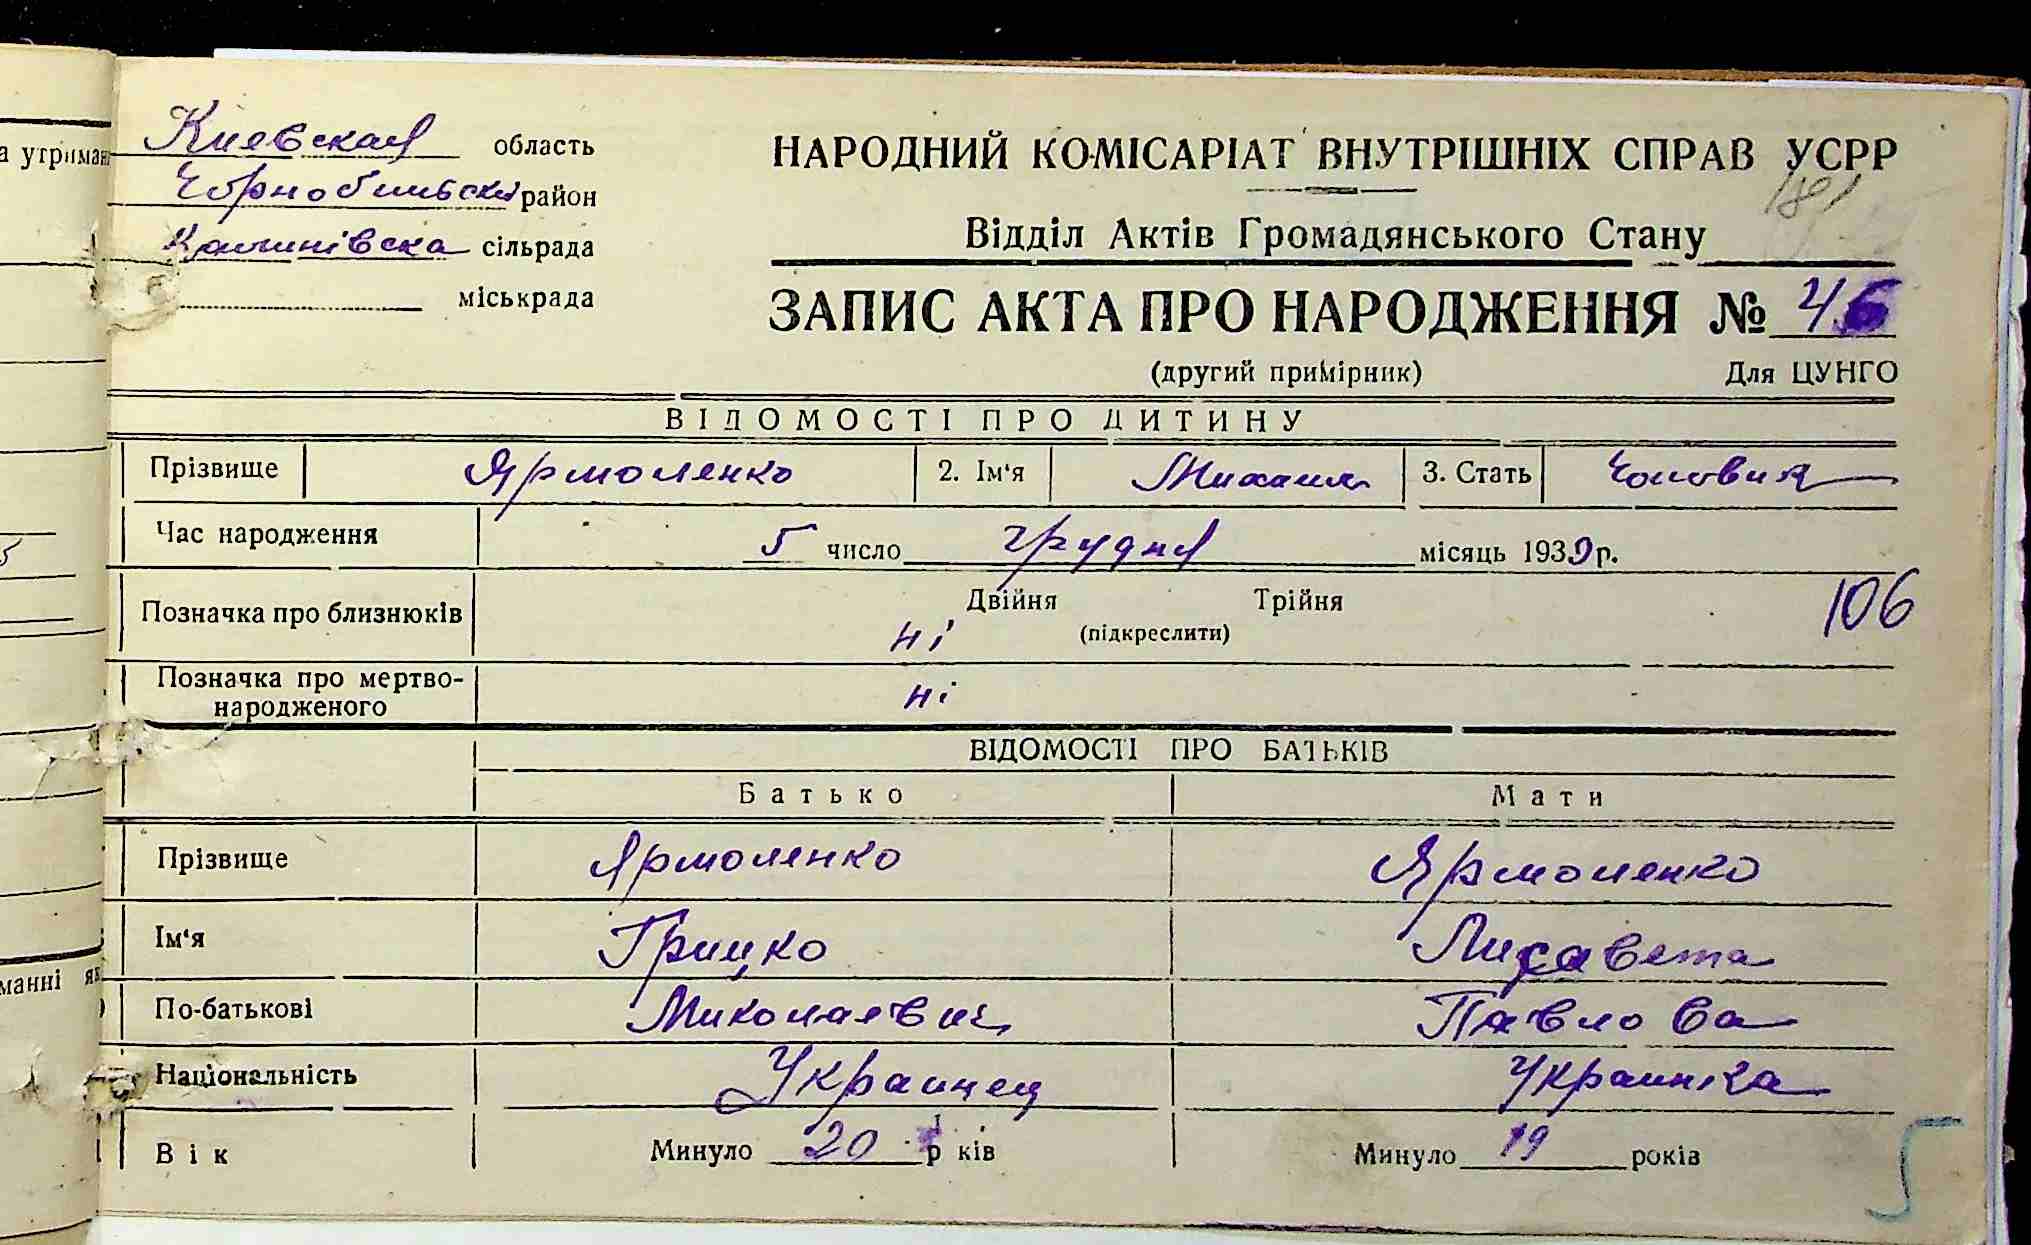 Киевская область
Чорнобильский район
Калинівска сільрада
міськрада
НАРОДНИЙ КОМІСАРІАТ ВНУТРІШНІХ СПРАВ УСРР
181
Відділ Актів Громадянського Стану
ЗАПИС АКТА ПРО НАРОДЖЕННЯ № 46
(другий примірник) Для ЦУНГО
ВІДОМОСТІ ПРО ДИТИНУ
Прізвище Ярмоленко 2. Ім'я Михаил 3. Стать Чоловик
Час народження 5 число грудня місяць 1939 р.
Позначка про близнюків ні Двійня Трійня
(підкреслити)
106
Позначка про мертво-
народженого ні
ВІДОМОСТІ ПРО БАТЬКІВ
Батько Мати
Прізвище Ярмоленко Ярмоленко
Ім'я Грицко Лисавета
По-батькові Миколаевич Павлова
Національність Украинец Украинка
Вік Минуло 20 років Минуло 19 років
5
а утриман
манні як
5